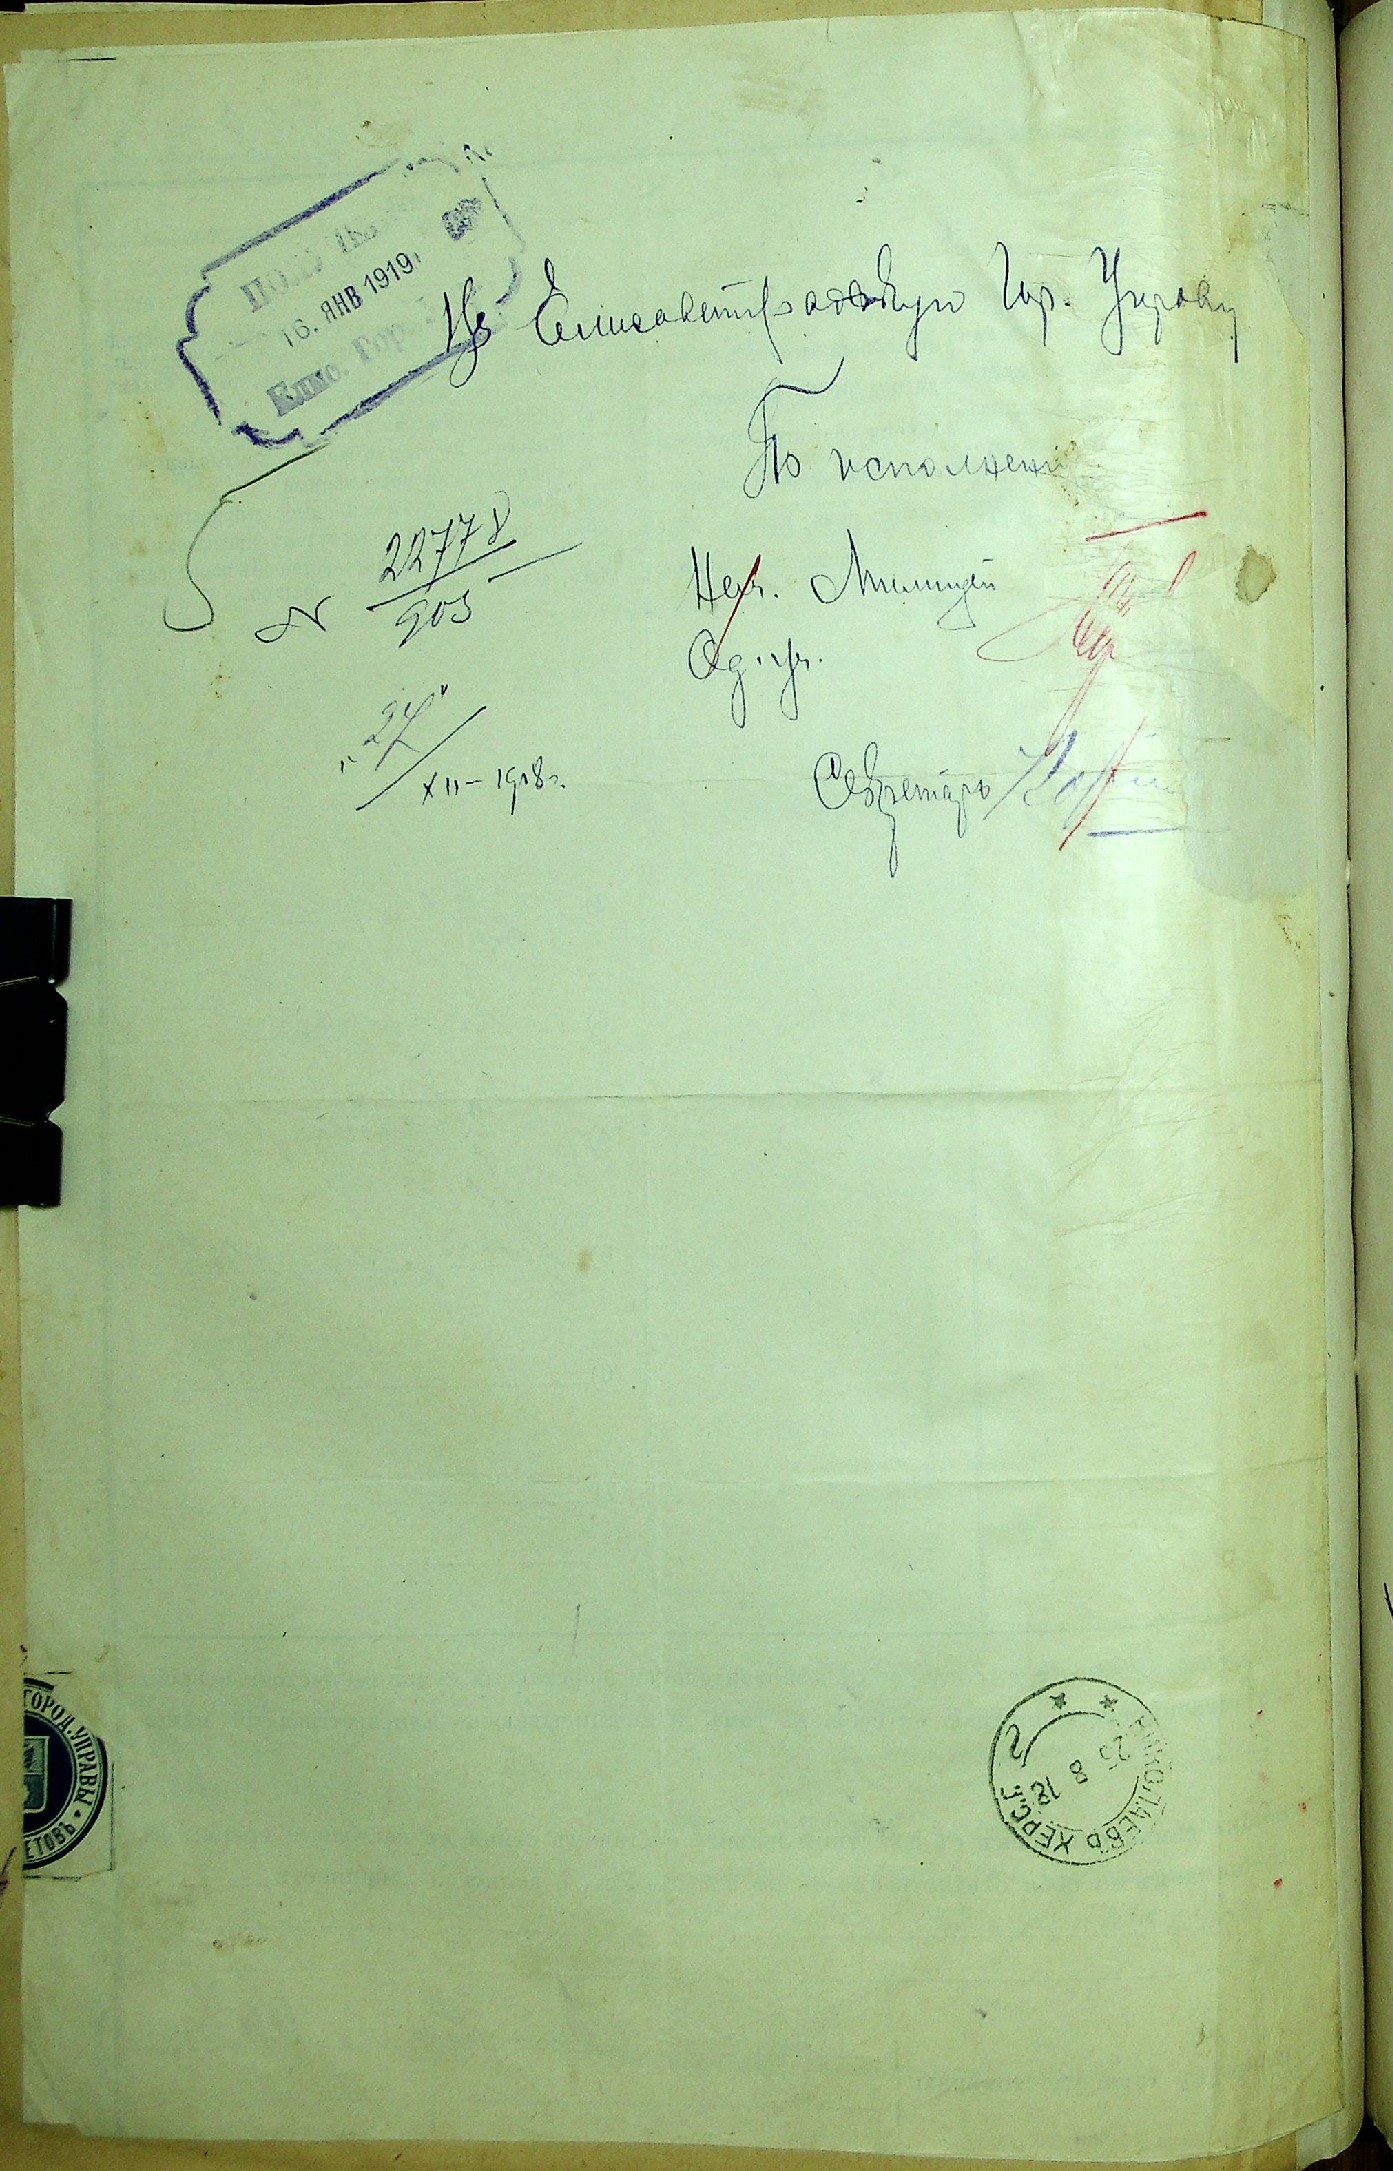 16. ЯНВ 1919
Елис. Гор.
Въ Елисаветградскую Гор. Управу
По исполнени
№ 22778
903
Нач. Милиции
Од. уч.
"24"
XII – 1918 г.
Секретарь
ГОРОД. УПРАВЫ •
ЕТОВЪ
НИКОЛАЕВЪ ХЕРС. Г.
25 8 18